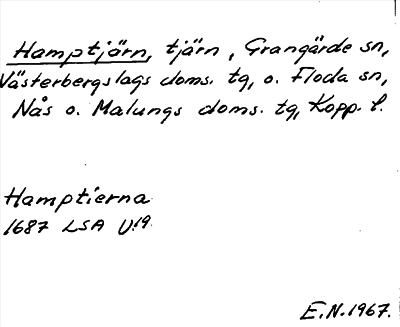 Hamptjärn, tjärn, Grangärde sn,
Västerbergslags doms. tg, o. Floda sn,
Nås o. Malungs doms. tg, Kopp. l.
Hamptierna
1687 LSA U 19
E.N. 1967.